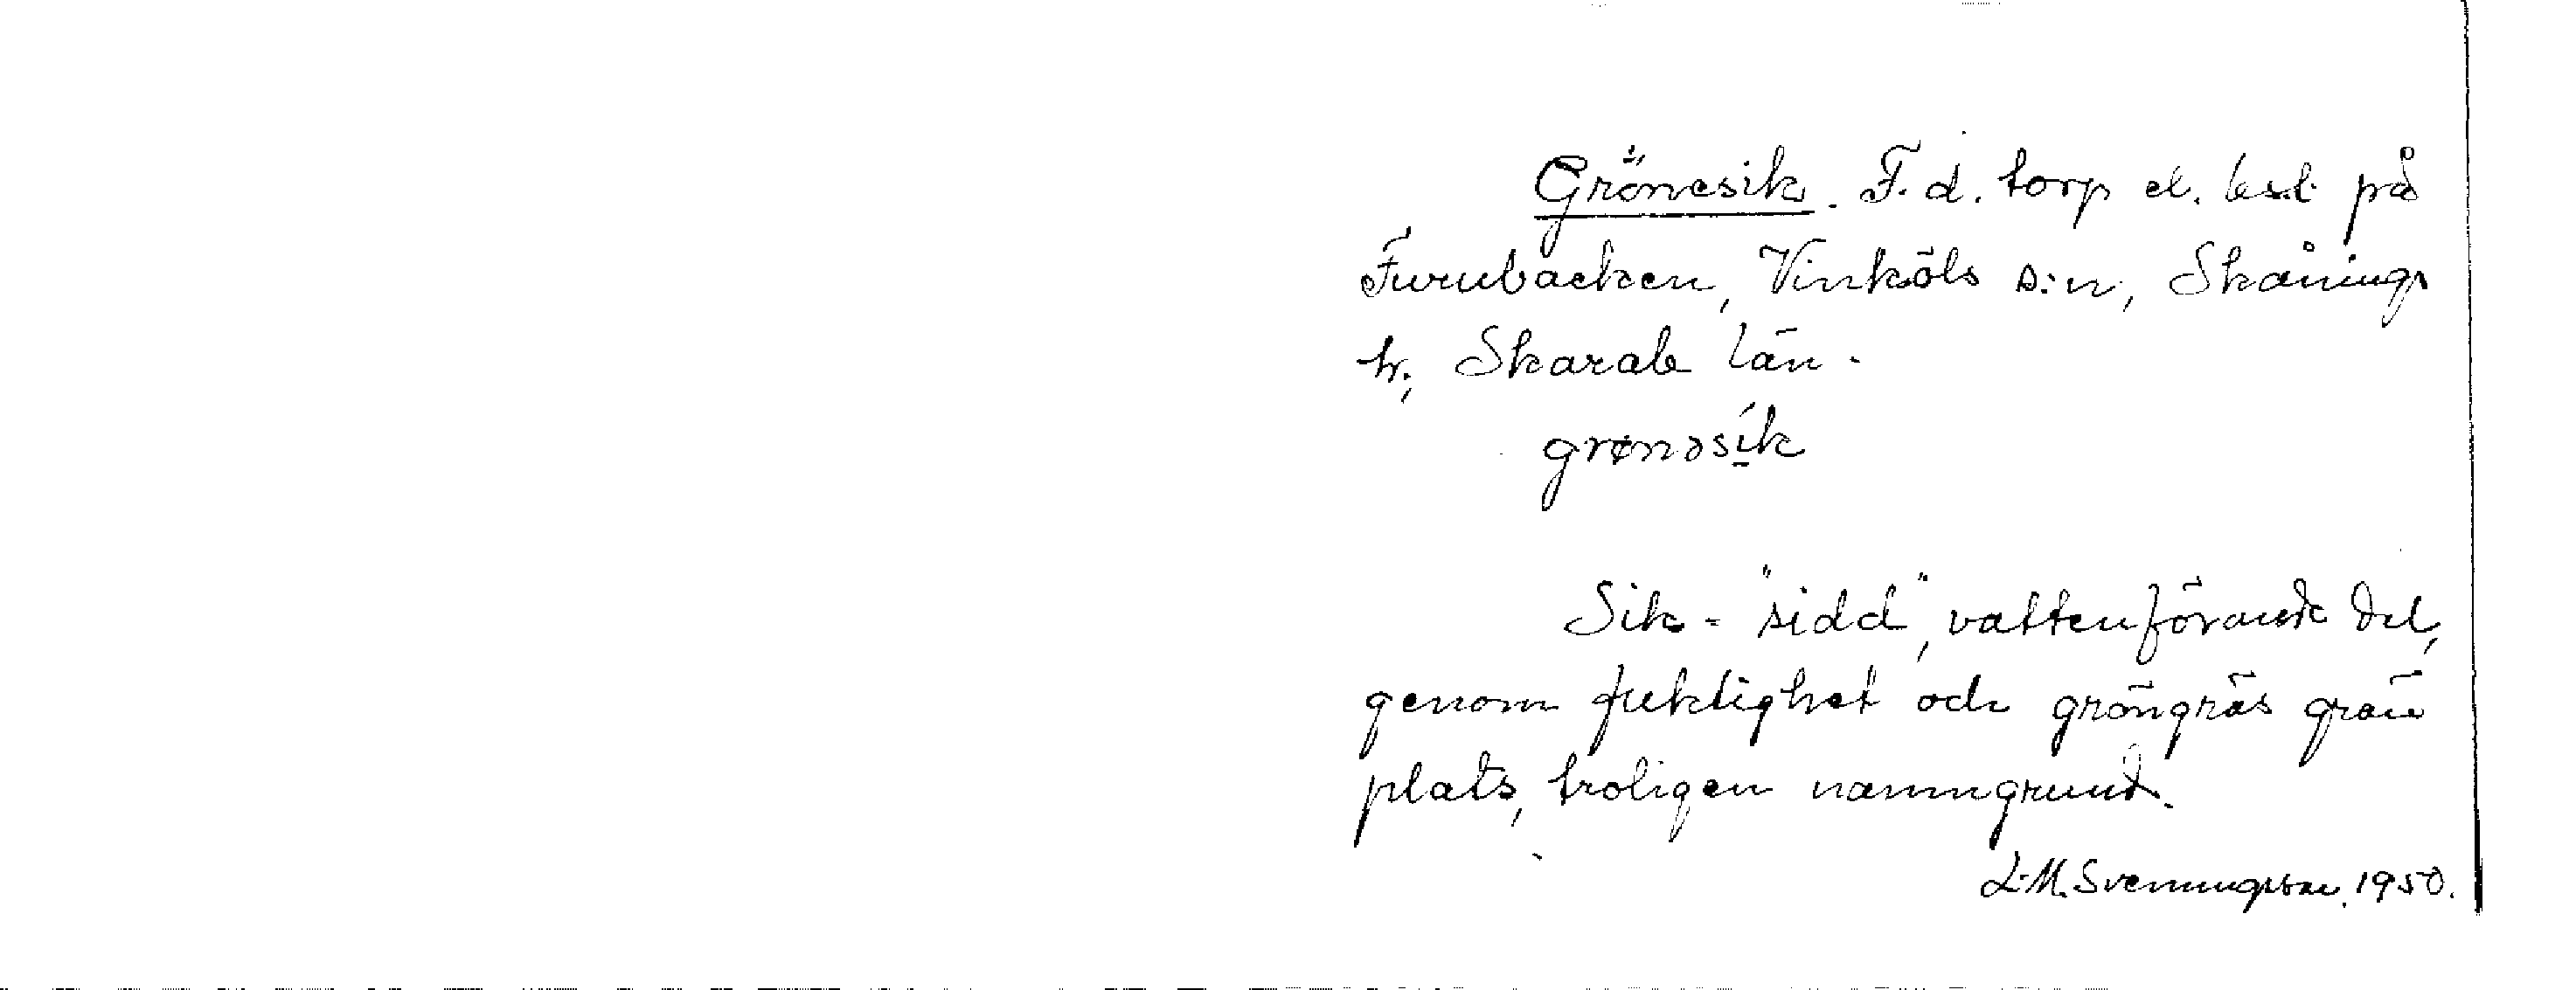 Grönesik. F. d. torp el. bst på
Furubacken, Vinköls s:n, Skånings
h., Skarab län.
grønəsík
Sik = "sidd", vattenförande del,
genom fuktighet och gröngräs grön
plats, troligen namngrund.
L.M. Svenungsson. 1950.